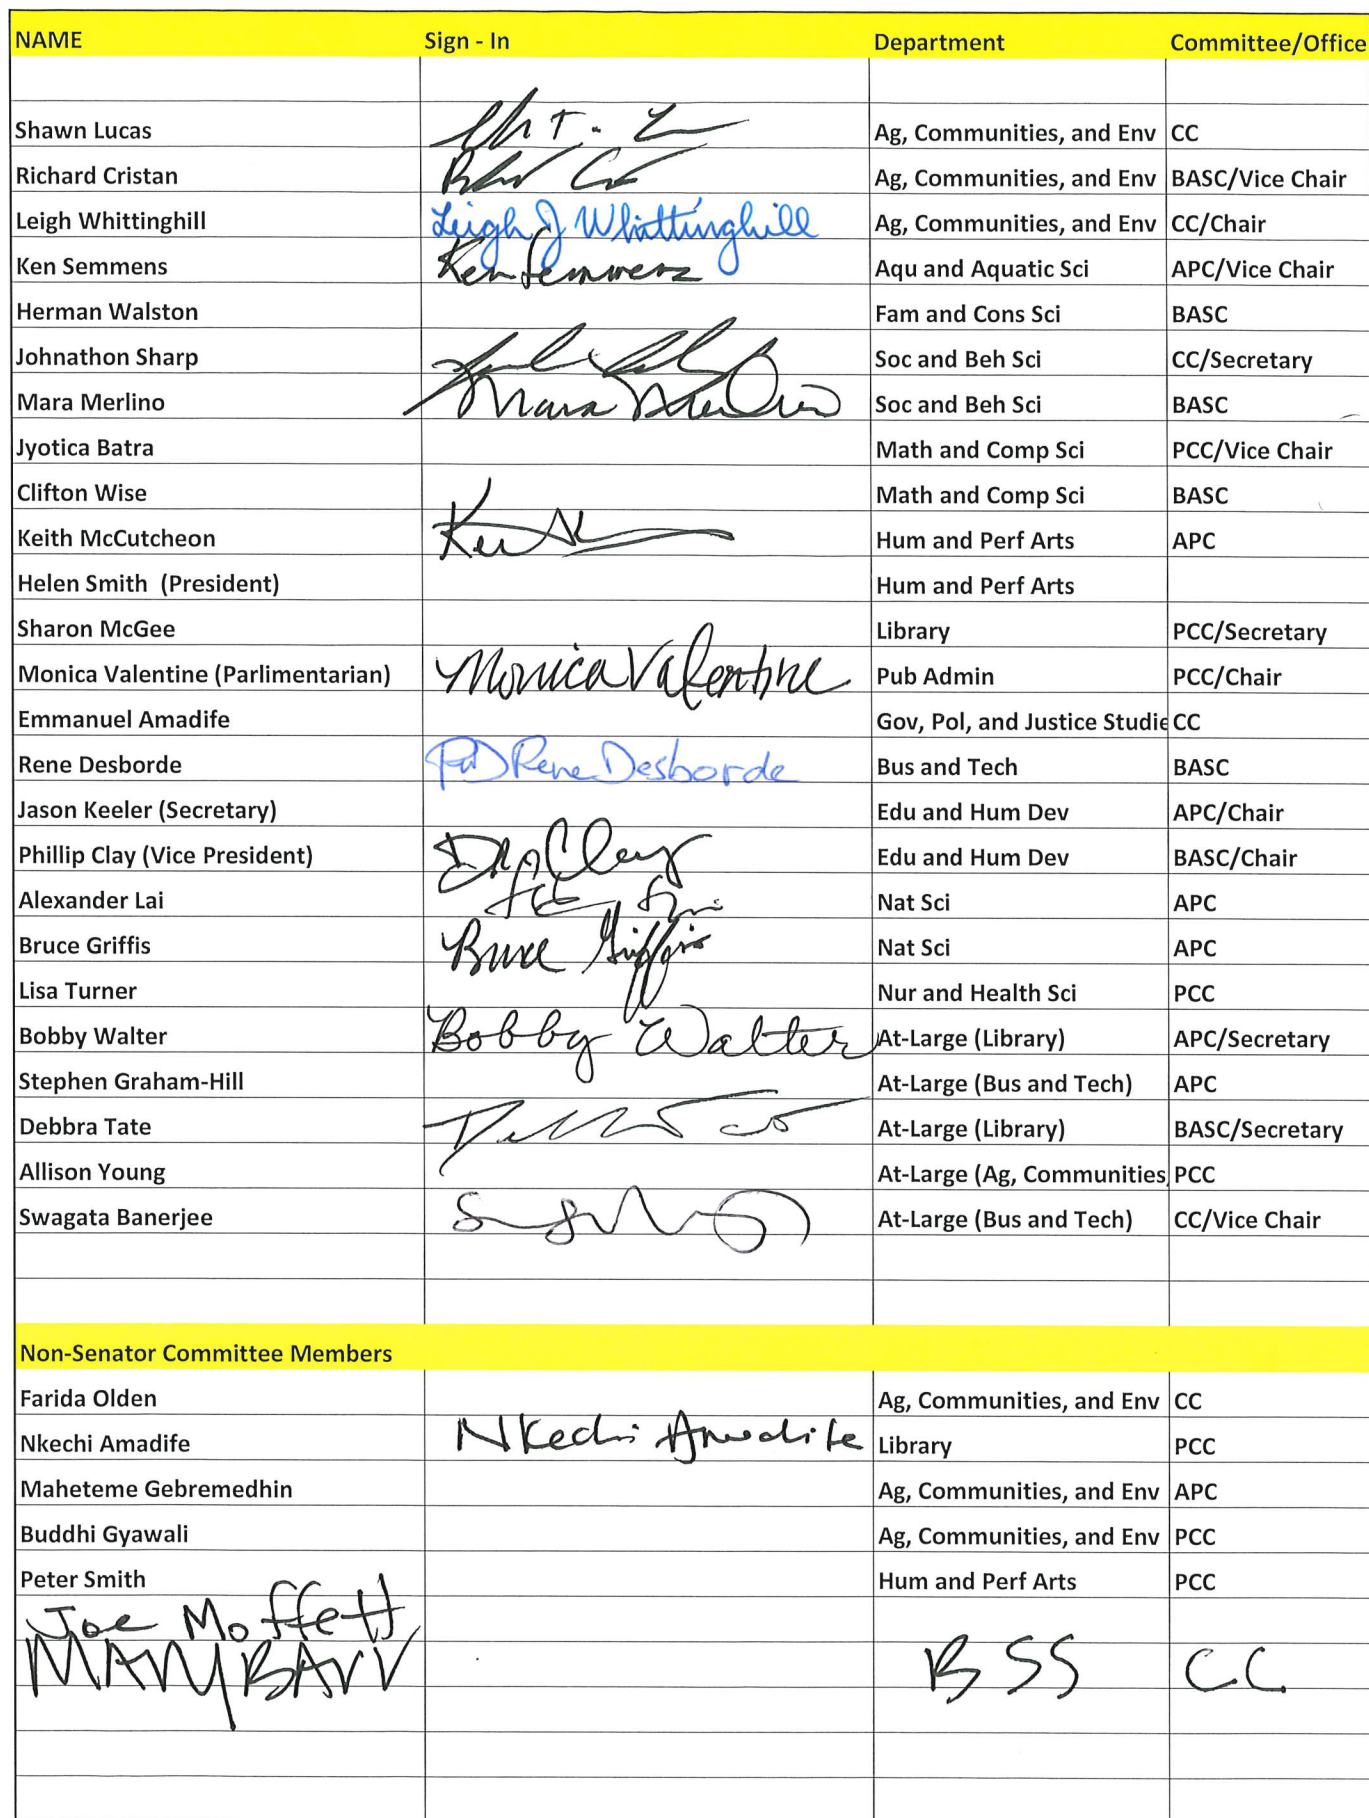 NAME Sign - In Department Committee/Office
Shawn Lucas Ag, Communities, and Env CC
Richard Cristan Ag, Communities, and Env BASC/Vice Chair
Leigh Whittinghill Leigh J Whittinghill Ag, Communities, and Env CC/Chair
Ken Semmens Ken Semmens Aqu and Aquatic Sci APC/Vice Chair
Herman Walston Fam and Cons Sci BASC
Johnathon Sharp Soc and Beh Sci CC/Secretary
Mara Merlino Mara Merlino Soc and Beh Sci BASC
Jyotica Batra Math and Comp Sci PCC/Vice Chair
Clifton Wise Math and Comp Sci BASC
Keith McCutcheon Hum and Perf Arts APC
Helen Smith (President) Hum and Perf Arts
Sharon McGee Library PCC/Secretary
Monica Valentine (Parlimentarian) Monica Valentine Pub Admin PCC/Chair
Emmanuel Amadife Gov, Pol, and Justice Studie CC
Rene Desborde Rene Desborde Bus and Tech BASC
Jason Keeler (Secretary) Edu and Hum Dev APC/Chair
Phillip Clay (Vice President) Clay Edu and Hum Dev BASC/Chair
Alexander Lai Nat Sci APC
Bruce Griffis Bruce Griffis Nat Sci APC
Lisa Turner Nur and Health Sci PCC
Bobby Walter Bobby Walter At-Large (Library) APC/Secretary
Stephen Graham-Hill At-Large (Bus and Tech) APC
Debbra Tate At-Large (Library) BASC/Secretary
Allison Young At-Large (Ag, Communities, PCC
Swagata Banerjee At-Large (Bus and Tech) CC/Vice Chair
Non-Senator Committee Members
Farida Olden Ag, Communities, and Env CC
Nkechi Amadife Nkechi Amadife Library PCC
Maheteme Gebremedhin Ag, Communities, and Env APC
Buddhi Gyawali Ag, Communities, and Env PCC
Peter Smith Hum and Perf Arts PCC
Joe Moffett
MARY BARR BSS CC